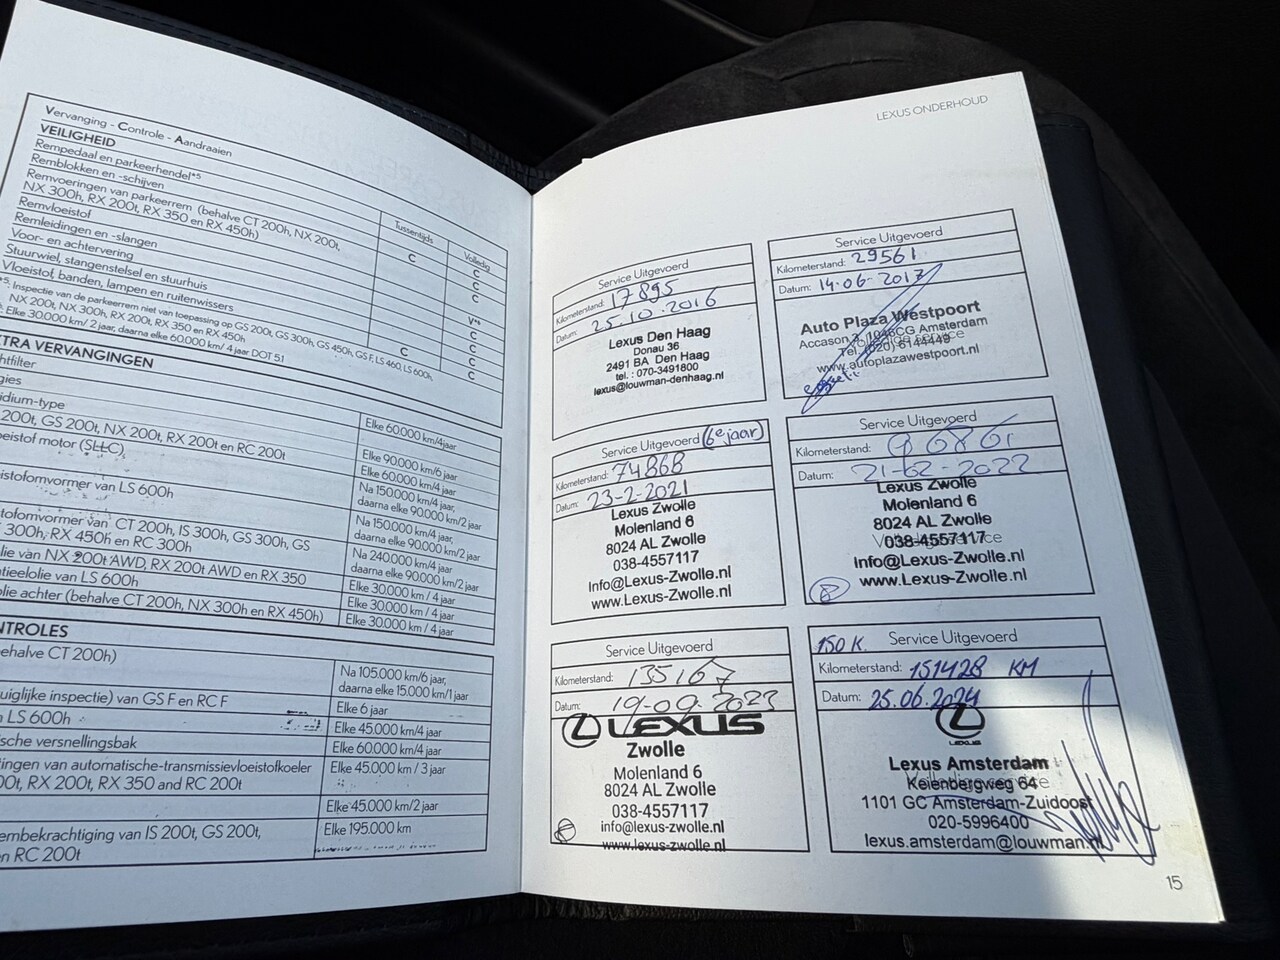 Vervanging - Controle - Aandraaien
VEILIGHEID
Tussentijds
Volledig
Rempedaal en parkeerhendel*5
C
Remblokken en -schijven
C
C
Remvoeringen van parkeerrem (behalve CT 200h, NX 200t,
NX 300h, RX 200t, RX 350 en RX 450h)
C
Remvloeistof
V*6
Remleidingen en -slangen
C
Voor- en achtervering
C
Stuurwiel, stangenstelsel en stuurhuis
C
Vloeistof, banden, lampen en ruitenwissers
C
C
*5: Inspectie van de parkeerrem niet van toepassing op GS 200t, GS 300h, GS 450h, GS F, LS 460, LS 600h,
NX 200t, NX 300h, RX 200t, RX 350 en RX 450h
Elke 30.000 km/ 2 jaar, daarna elke 60.000 km/ 4 jaar DOT 5.1
TRA VERVANGINGEN
htfilter
Elke 60.000 km/4jaar
gies
idium-type
Elke 90.000 km/6 jaar
200t, GS 200t, NX 200t, RX 200t en RC 200t
Elke 60.000 km/4 jaar
oeistof motor (SLLC),
Na 150.000 km/4 jaar,
daarna elke 90.000 km/2 jaar
istofomvormer van LS 600h
Na 150.000 km/4 jaar,
daarna elke 90.000 km/2 jaar
stofomvormer van CT 200h, IS 300h, GS 300h, GS
300h, RX 450h en RC 300h
Na 240.000 km/4 jaar
daarna elke 90.000 km/2 jaar
olie van NX 200t AWD, RX 200t AWD en RX 350
Elke 30.000 km / 4 jaar
ntieelolie van LS 600h
Elke 30.000 km / 4 jaar
olie achter (behalve CT 200h, NX 300h en RX 450h)
Elke 30.000 km / 4 jaar
NTROLES
behalve CT 200h)
Na 105.000 km/6 jaar,
daarna elke 15.000 km/1 jaar
uiglijke inspectie) van GS F en RC F
Elke 6 jaar
n LS 600h
Elke 45.000 km/4 jaar
ische versnellingsbak
Elke 60.000 km/4 jaar
tingen van automatische-transmissievloeistofkoeler
00t, RX 200t, RX 350 and RC 200t
Elke 45.000 km / 3 jaar
Elke 45.000 km/2 jaar
embekrachtiging van IS 200t, GS 200t,
en RC 200t
Elke 195.000 km
LEXUS ONDERHOUD
Service Uitgevoerd
Kilometerstand: 17895
Datum: 25.10.2016
Lexus Den Haag
Donau 36
2491 BA Den Haag
tel. : 070-3491800
lexus@louwman-denhaag.nl
Service Uitgevoerd
Kilometerstand: 29561
Datum: 14-06-2017
Auto Plaza Westpoort
Accason 3, 1046CG Amsterdam
Tel. (020) 6144449
www.autoplazawestpoort.nl
Service Uitgevoerd (6e jaar)
Kilometerstand: 74868
Datum: 23-2-2021
Lexus Zwolle
Molenland 6
8024 AL Zwolle
038-4557117
Info@Lexus-Zwolle.nl
www.Lexus-Zwolle.nl
Service Uitgevoerd
Kilometerstand: 96861
Datum: 21-02-2022
Lexus Zwolle
Molenland 6
8024 AL Zwolle
038-4557117
Info@Lexus-Zwolle.nl
www.Lexus-Zwolle.nl
Service Uitgevoerd
Kilometerstand: 135167
Datum: 19-09-2023
LEXUS
Zwolle
Molenland 6
8024 AL Zwolle
038-4557117
info@lexus-zwolle.nl
www.lexus-zwolle.nl
150 K. Service Uitgevoerd
Kilometerstand: 151428 KM
Datum: 25.06.2024
LEXUS
Lexus Amsterdam
Volledige service
Keienbergweg 64
1101 GC Amsterdam-Zuidoost
020-5996400
lexus.amsterdam@louwman.nl
15